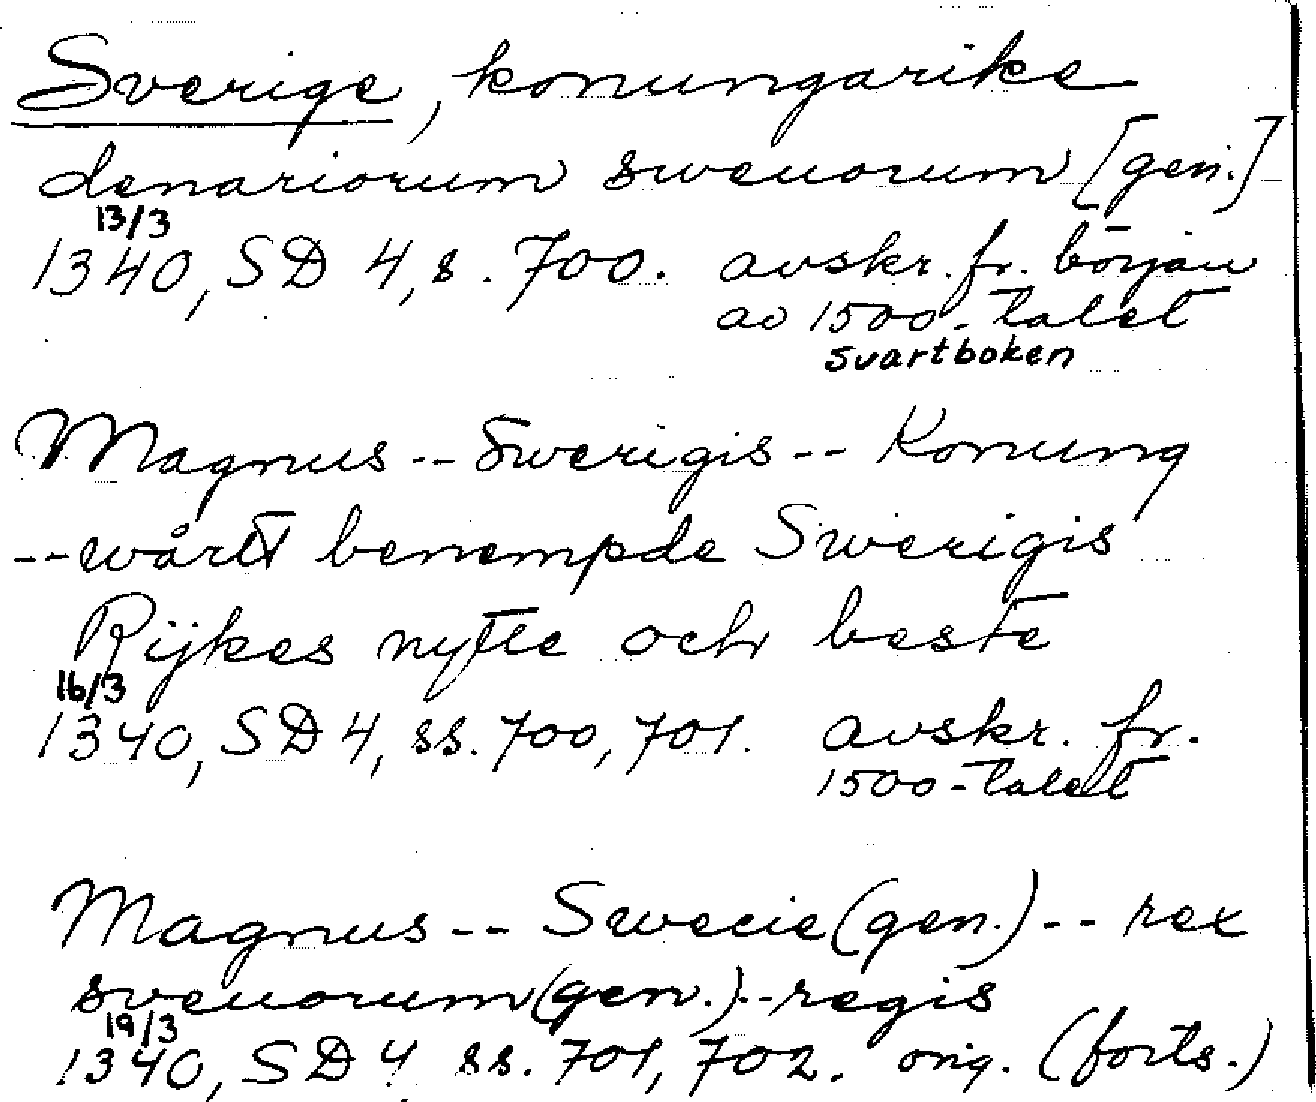 Sverige, konungarike
denariorum sweuorum [gen.]
13/3
1340, SD 4, s. 700. avskr. fr. början
av 1500-talet
svartboken
Magnus -- Swerigis -- Konung
-- wårtt benempde Swerigis
Rijkes nytte och beste
16/3
1340, SD 4, ss. 700, 701. avskr. fr.
1500-talet
Magnus -- Swecie (gen.) -- rex
sveuorum (gen.) -- regis
19/3
1340, SD 4 ss. 701, 702. orig. (forts.)